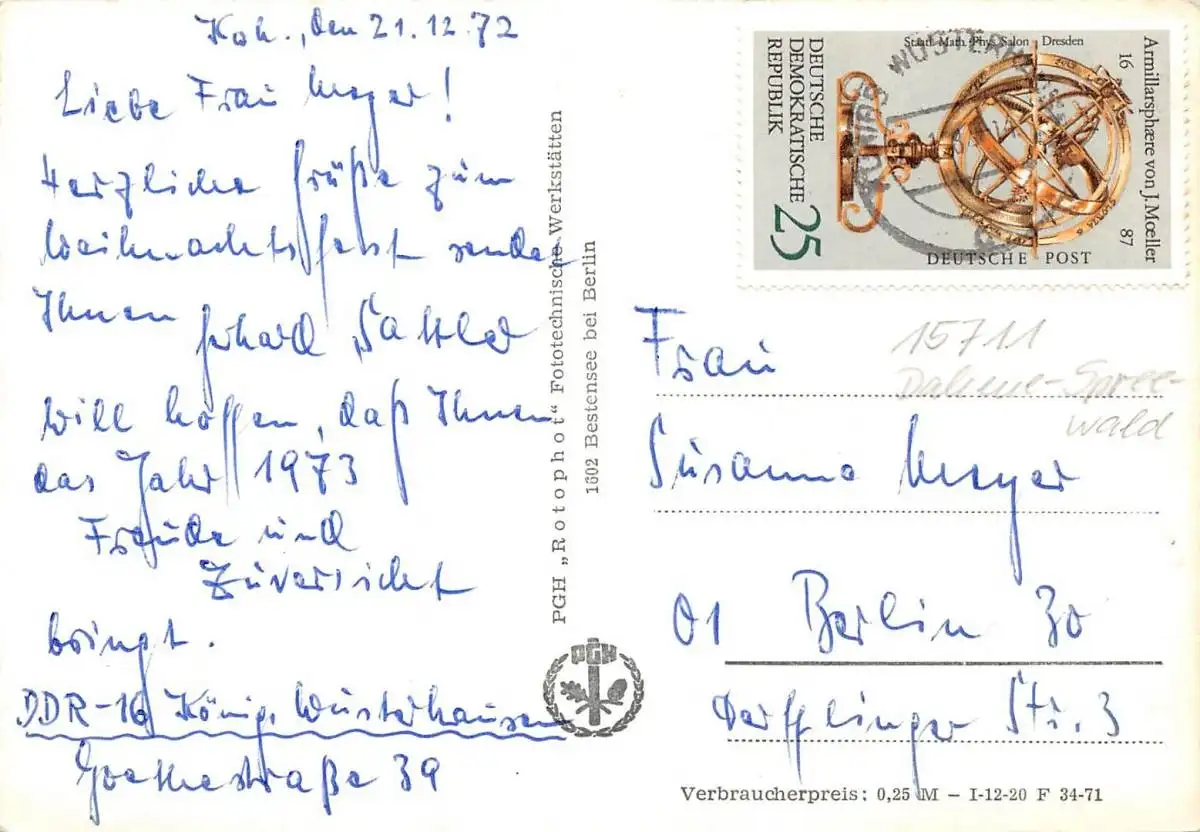 Koh., den 21.12.72
Liebe Frau Meyer!
Herzliche Grüße zum
Weihnachtsfest sendet
Ihnen Gerhard Sattler
Will hoffen, daß Ihnen
das Jahr 1973
Freude und
Zuversicht
bringt.
DDR-16 König. Wusterhausen
Goethestraße 39
PGH „Rotophot“ Fototechnische Werkstätten
1602 Bestensee bei Berlin
PGH
Staatl. Math. Phys. Salon Dresden
DEUTSCHE
DEMOKRATISCHE
REPUBLIK
25
Armillarsphære von J. Mœller
16 87
DEUTSCHE POST
KÖNIGS WUSTERHAUSEN
15711
Dahme-Spree-
wald
Frau
Susanna Meyer
01 Berlin 30
Derfflinger Str. 3
Verbraucherpreis: 0,25 M – I-12-20 F 34-71